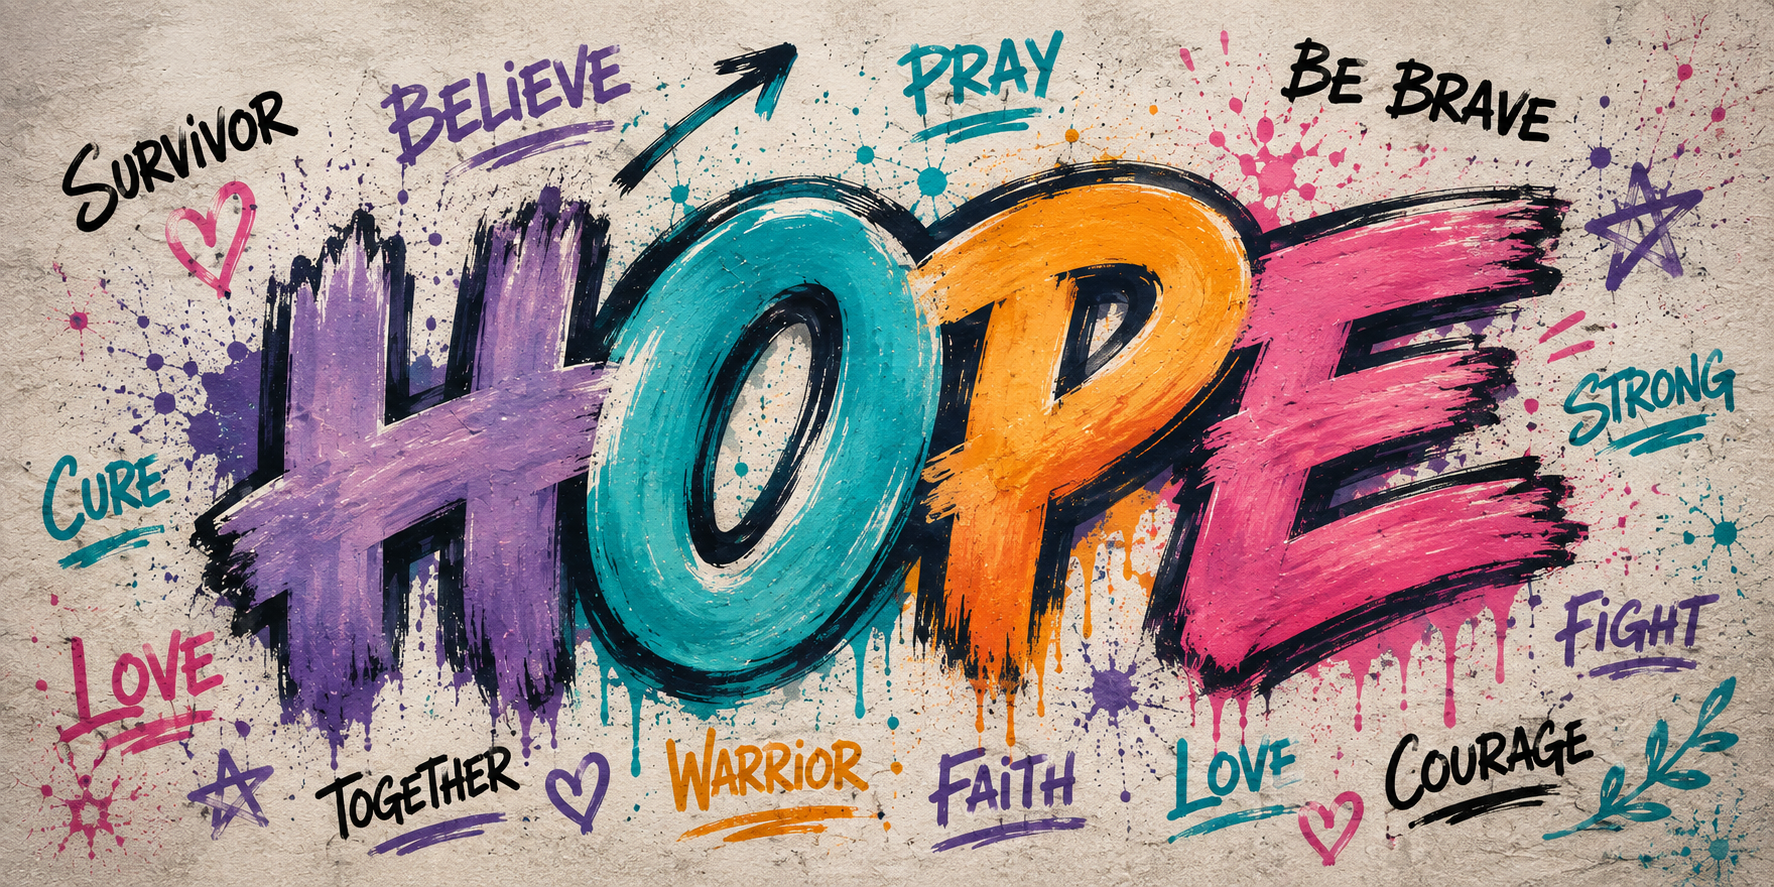 SURViVOR
BELiEVE
PRAY
BE BRAVE
HOPE
STRONG
CURE
FiGHT
LOVE
TOGETHER
WARRiOR
FAiTH
LOVE
COURAGE